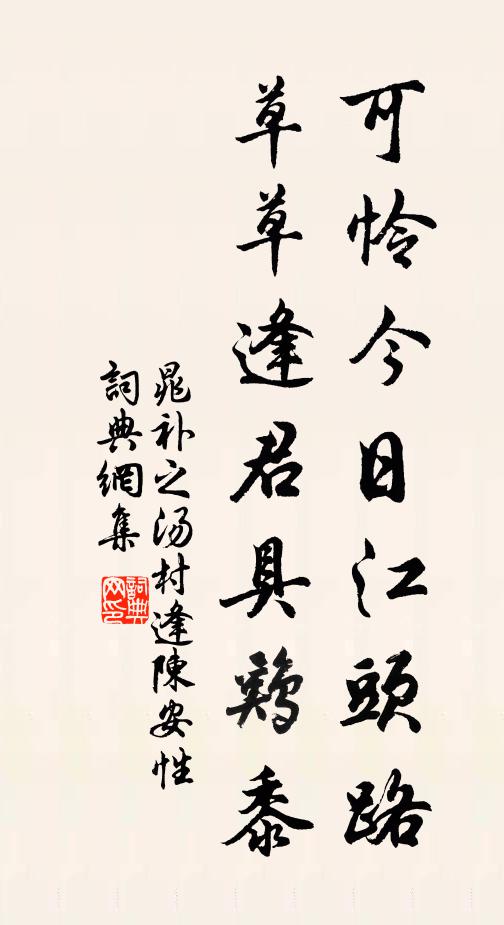 可怜今日江頭路
草草逢君具鷄黍
晁补之汤村逢陳安性
詞典網集
詞典网印